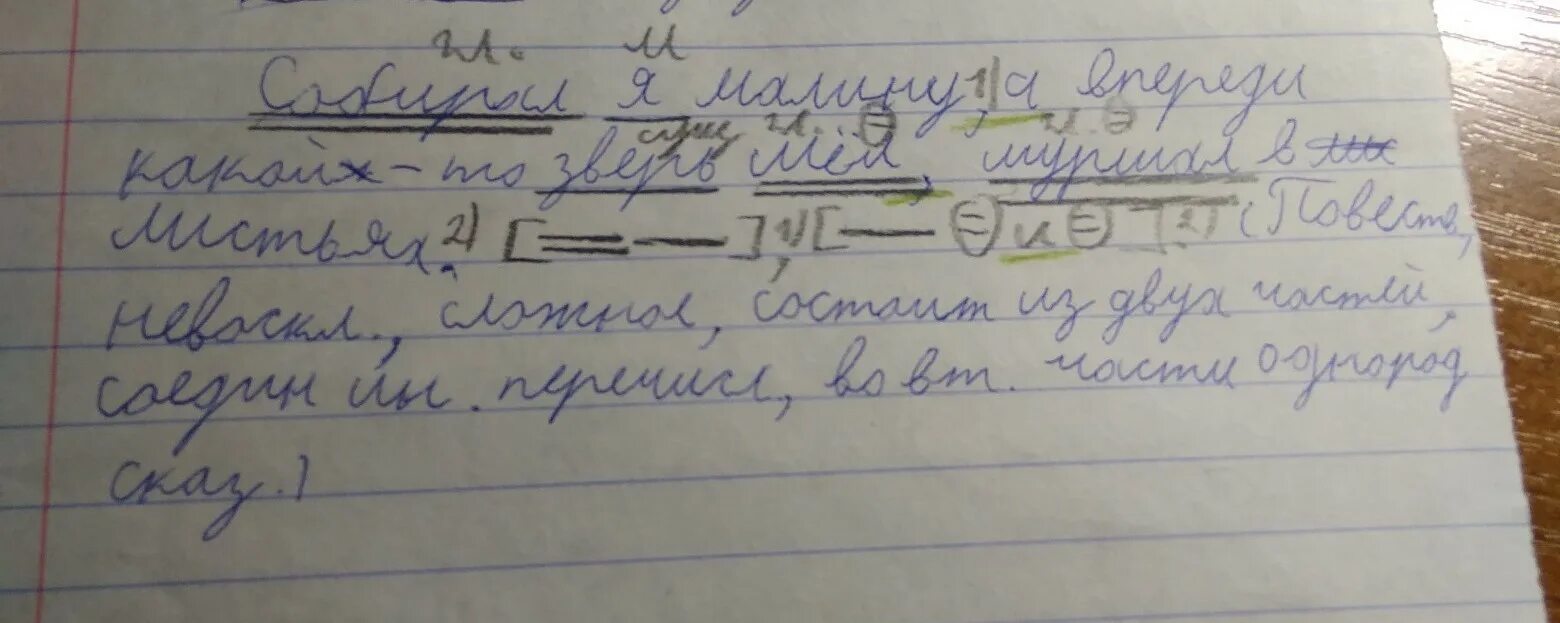 гл. м
Собирал я малину, 1) а впереди
сущ гл. гл.
какой-то зверь шёл, шуршал в
листьях. 2) [ ], 1) [ и ] 2) (Повеств,
невоскл., сложное, состоит из двух частей,
соедин ин. перечисл, во вт. части однород
сказ.)